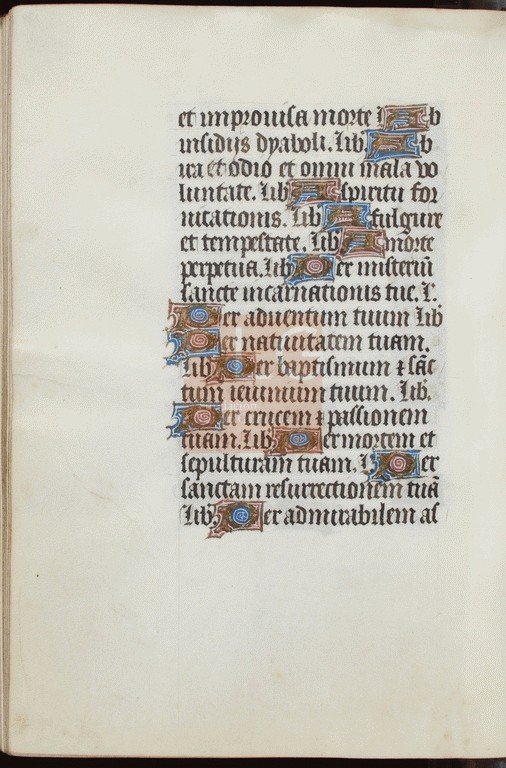 et improuisa morte l Ab
insidijs dyaboli. Lib Ab
ira et odio et omni mala vo
luntate. Lib A spiritu for
nicationis. Lib A fulgure
et tempestate. Lib A morte
perpetua. Lib Per misteriū
sancte incarnationis tue. L.
Per aduentum tuum Lib
Per natiuitatem tuam.
Lib Per baptismum ⁊ sāc
tum ieiunium tuum. Lib.
Per crucem ⁊ passionem
tuam. Lib Per mortem et
sepulturam tuam. L Per
sanctam resurrectionem tuā
Lib Per admirabilem as